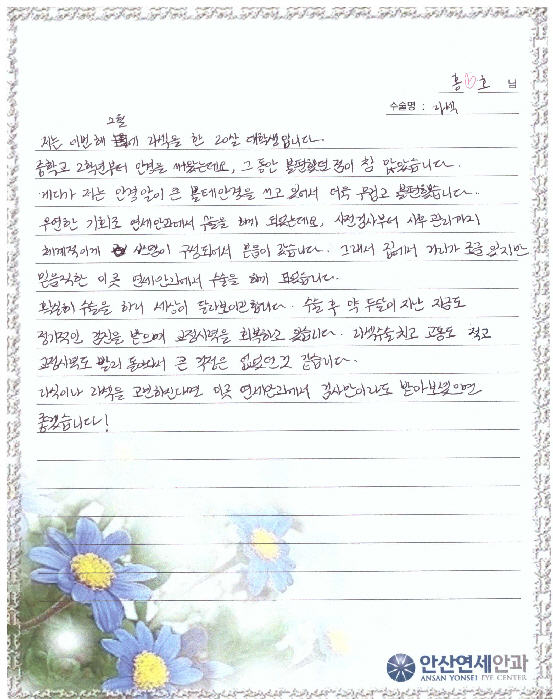 홍 호 님
수술명 : 라섹
2월
저는 이번해 에 라섹을 한 20살 대학생입니다.
중학교 2학년부터 안경을 써왔는데요, 그 동안 불편했던 점이 참 많았습니다.
게다가 저는 안경알이 큰 뿔테안경을 쓰고 있어서 더욱 무겁고 불편했습니다.
우연한 기회로 연세안과에서 수술을 하게 되었는데요, 사전검사부터 사후관리까지
체계적이게 구성되어서 믿음이 갔습니다. 그래서 집에서 거리가 조금 있지만
믿음직한 이곳 연세안과에서 수술을 하게 되었습니다.
확실히 수술을 하니 세상이 달라보이긴합니다. 수술 후 약 두달이 지난 지금도
정기적인 검진을 받으며 교정시력을 회복하고 있습니다. 라섹수술치고 고통도 적고
교정시력도 빨리 돌아와서 큰 걱정은 없었던것 같습니다.
라식이나 라섹을 고민하신다면 이곳 연세안과에서 검사만이라도 받아보셨으면
좋겠습니다!
안산연세안과
ANSAN YONSEI EYE CENTER